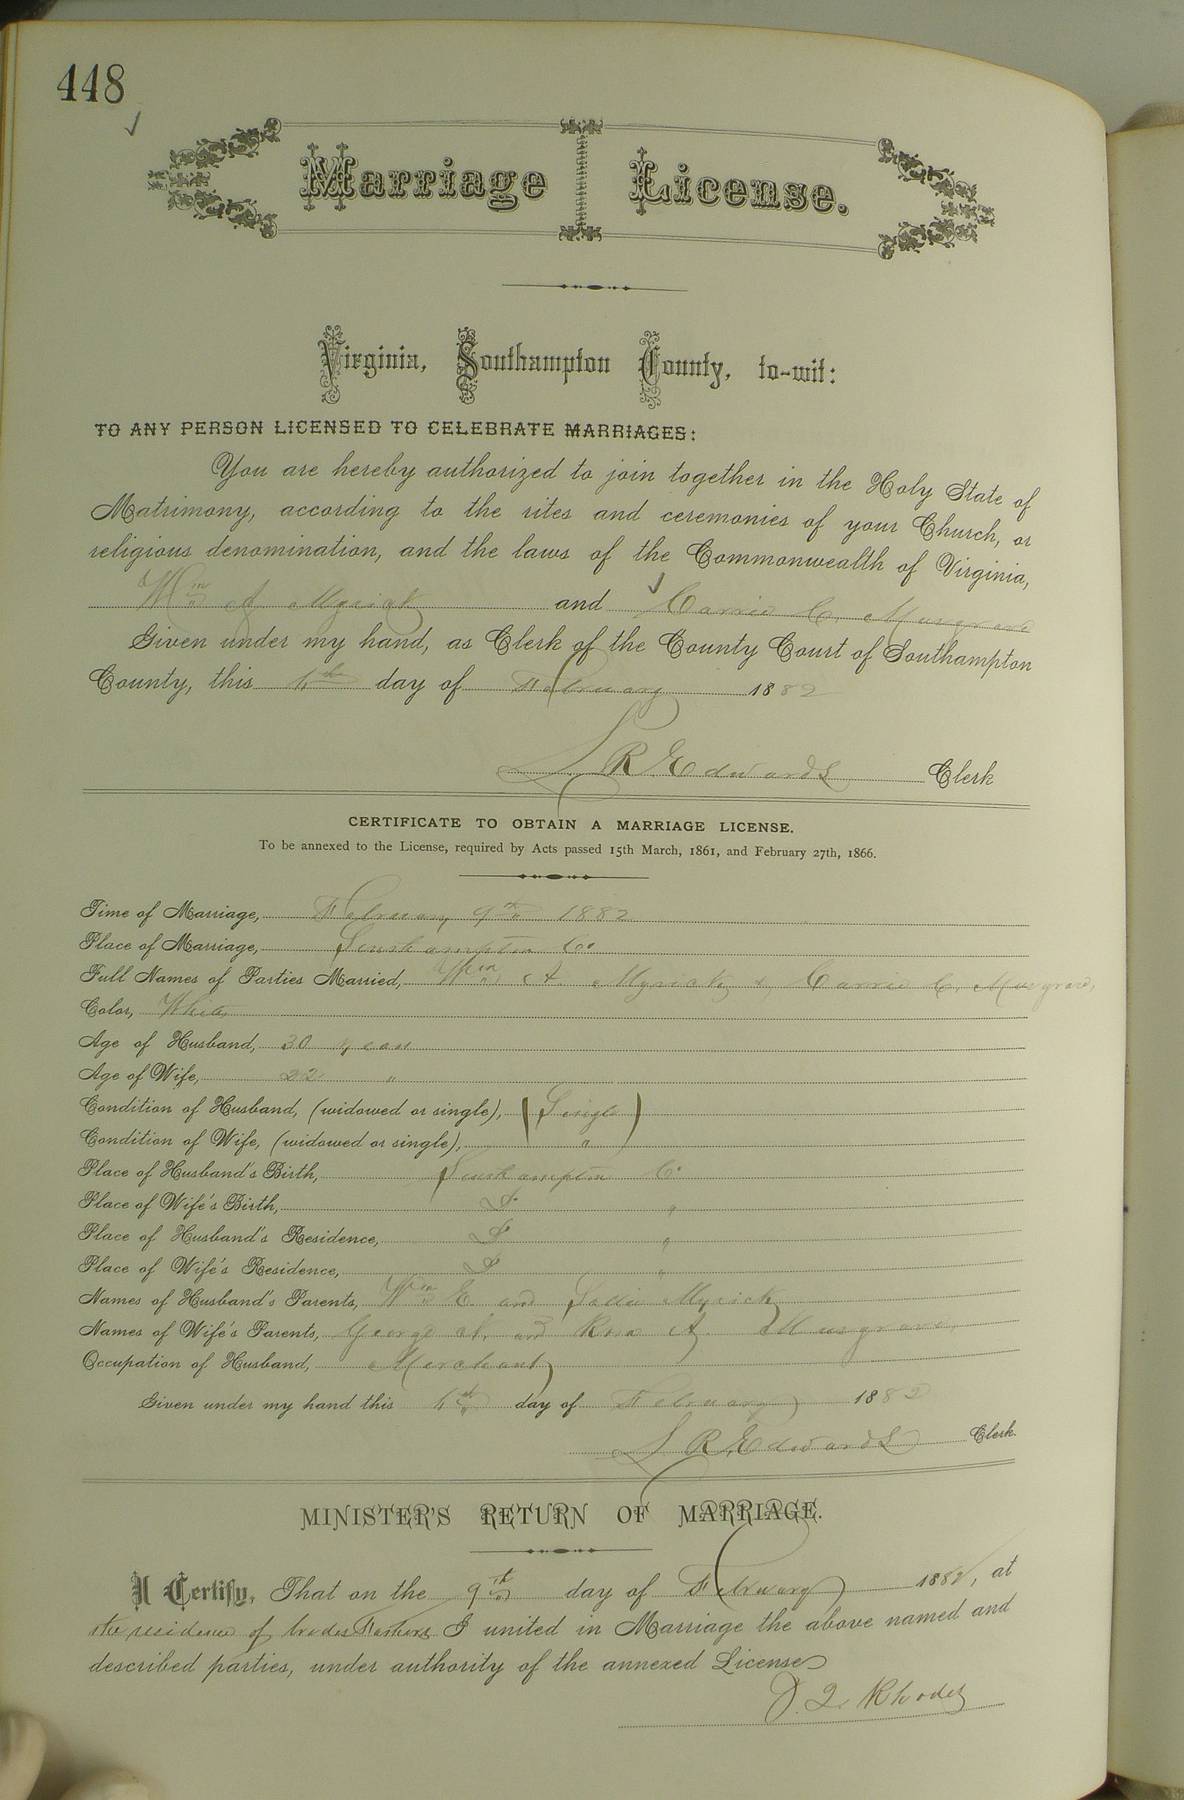 448
Marriage License.
Virginia, Southampton County, to-wit:
TO ANY PERSON LICENSED TO CELEBRATE MARRIAGES:
You are hereby authorized to join together in the Holy State of
Matrimony, according to the rites and ceremonies of your Church, or
religious denomination, and the laws of the Commonwealth of Virginia,
Wm A Myrick and Carrie C. Musgrave
Given under my hand, as Clerk of the County Court of Southampton
County, this day of February 1882
L R Edwards Clerk
CERTIFICATE TO OBTAIN A MARRIAGE LICENSE.
To be annexed to the License, required by Acts passed 15th March, 1861, and February 27th, 1866.
Time of Marriage, February 9th 1882
Place of Marriage, Southampton Co
Full Names of Parties Married, Wm A. Myrick & Carrie C. Musgrave,
Color, White
Age of Husband, 30 years
Age of Wife, 22 "
Condition of Husband, (widowed or single), (Single)
Condition of Wife, (widowed or single), "
Place of Husband's Birth, Southampton Co
Place of Wife's Birth, "
Place of Husband's Residence, "
Place of Wife's Residence, "
Names of Husband's Parents, Wm E. and Sallie Myrick
Names of Wife's Parents, George and A. Musgrave,
Occupation of Husband, Merchant
Given under my hand this day of February 1882
L R Edwards Clerk.
MINISTER'S RETURN OF MARRIAGE.
I Certify, That on the 9th day of February 1882, at
the residence of brides Fathers I united in Marriage the above named and
described parties, under authority of the annexed License
Rhodes